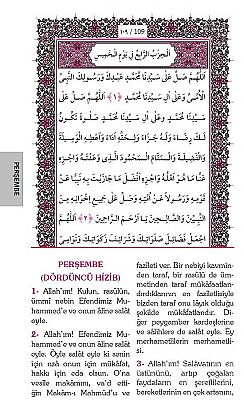 ١٠٩ / 109
اَلْحِزْبُ الرَّابِعُ فِي يَوْمِ الْخَمِيسِ
اَللّٰهُمَّ صَلِّ عَلٰى سَيِّدِنَا مُحَمَّدٍ عَبْدِكَ وَرَسُولِكَ النَّبِيِّ
الْاُمِّيِّ وَعَلٰى اٰلِ سَيِّدِنَا مُحَمَّدٍ ﴿١﴾ اَللّٰهُمَّ صَلِّ عَلٰى
سَيِّدِنَا مُحَمَّدٍ وَعَلٰى اٰلِ سَيِّدِنَا مُحَمَّدٍ صَلَاةً تَكُونُ
لَكَ رِضَاءً وَلَهُ جَزَاءً وَلِحَقِّهِ اَدَاءً وَاَعْطِهِ الْوَسِيلَةَ
وَالْفَضِيلَةَ وَالْمَقَامَ الْمَحْمُودَ الَّذِي وَعَدْتَهُ وَاجْزِهِ
عَنَّا مَا هُوَ اَهْلُهُ وَاجْزِهِ اَفْضَلَ مَا جَازَيْتَ بِهِ نَبِيًّا عَنْ
قَوْمِهِ وَرَسُولًا عَنْ اُمَّتِهِ وَصَلِّ عَلٰى جَمِيعِ اِخْوَانِهِ مِنَ
النَّبِيِّينَ وَالصَّالِحِينَ يَا اَرْحَمَ الرَّاحِمِينَ ﴿٢﴾ اَللّٰهُمَّ
اجْعَلْ فَضَائِلَ صَلَوَاتِكَ وَشَرَائِفَ زَكَوَاتِكَ وَنَوَامِيَ
PERŞEMBE
PERŞEMBE
(DÖRDÜNCÜ HİZİB)
1- Allah'ım! Kulun, rasûlün,
ümmî nebin Efendimiz Mu-
hammed'e ve onun âline salât
eyle.
2- Allah'ım! Efendimiz Mu-
hammed'e ve onun âline salât
eyle. Öyle salât eyle ki senin
için rızâ onun için mükâfat,
hakkı için eda olsun. O'na
vesîle makâmını, va'd etti-
ğin Makâm-ı Mahmûd'u ve
fazileti ver. Bir nebiyi kavmin-
den taraf, bir rasûlü de üm-
metinden taraf mükâfaatlan-
dırdıklarının en faziletlisiyle
bizden taraf onu lâyık olduğu
şekilde mükâfatlandır. Di-
ğer peygamber kardeşlerine
ve sâlihlere de salât eyle. Ey
merhametlilerin merhametli-
si.
3- Allah'ım! Salâvatının en
üstününü, artıp çoğalan
faydaların en şereflilerini,
bereketlerinin en çok artanını,